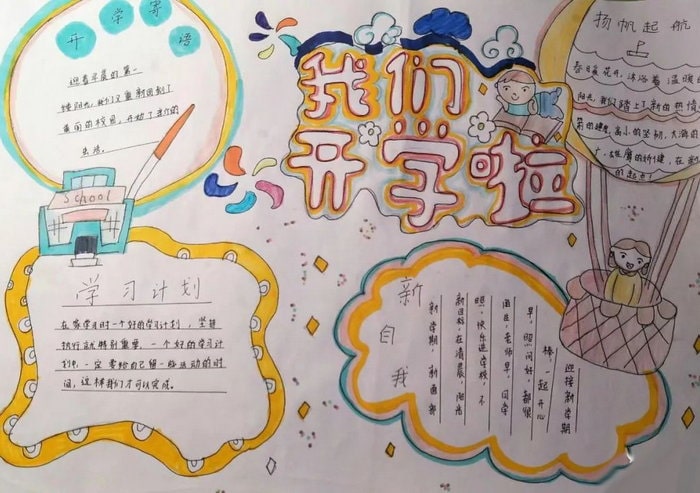 开学寄语
迎着早晨的第一
缕阳光,我们又重新回到了
美丽的校园,开始了新的
生活。
我们
开学啦
扬帆起航
春暖花开,沐浴着温暖
阳光,我们踏上了新的热情
的起点!
School
学习计划
在家学习时一个好的学习计划,坚持
执行就特别重要。一个好的学习计
划中,一定要给自己留一些运动的时
间,这样我们才可以完成。
新自我
迎接新学期
棒,一起开心
早,照问好,都很
面目,老师早,同学
照,快乐进学校,不
新目标,在清晨,阳光
新学期,新面貌